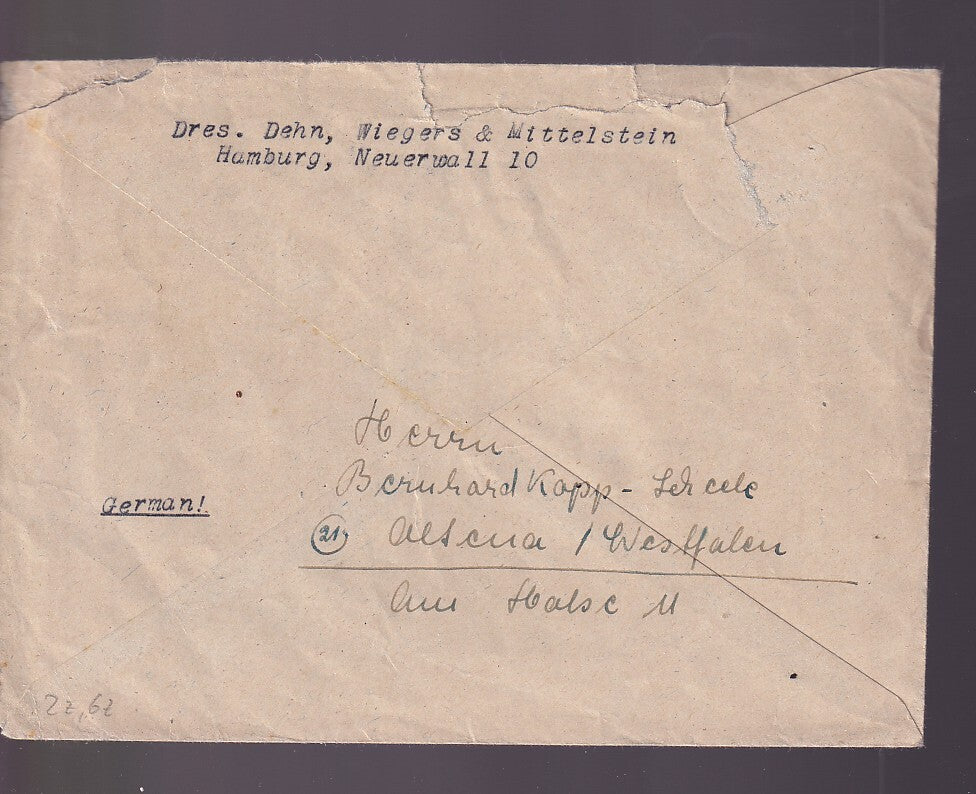 Dres. Dehn, Wiegers & Mittelstein
Hamburg, Neuerwall 10
Herrn
Bernhard Kopp - Scheele
German!
21 Altena / Westfalen
Am Halse 11
2z, 6z